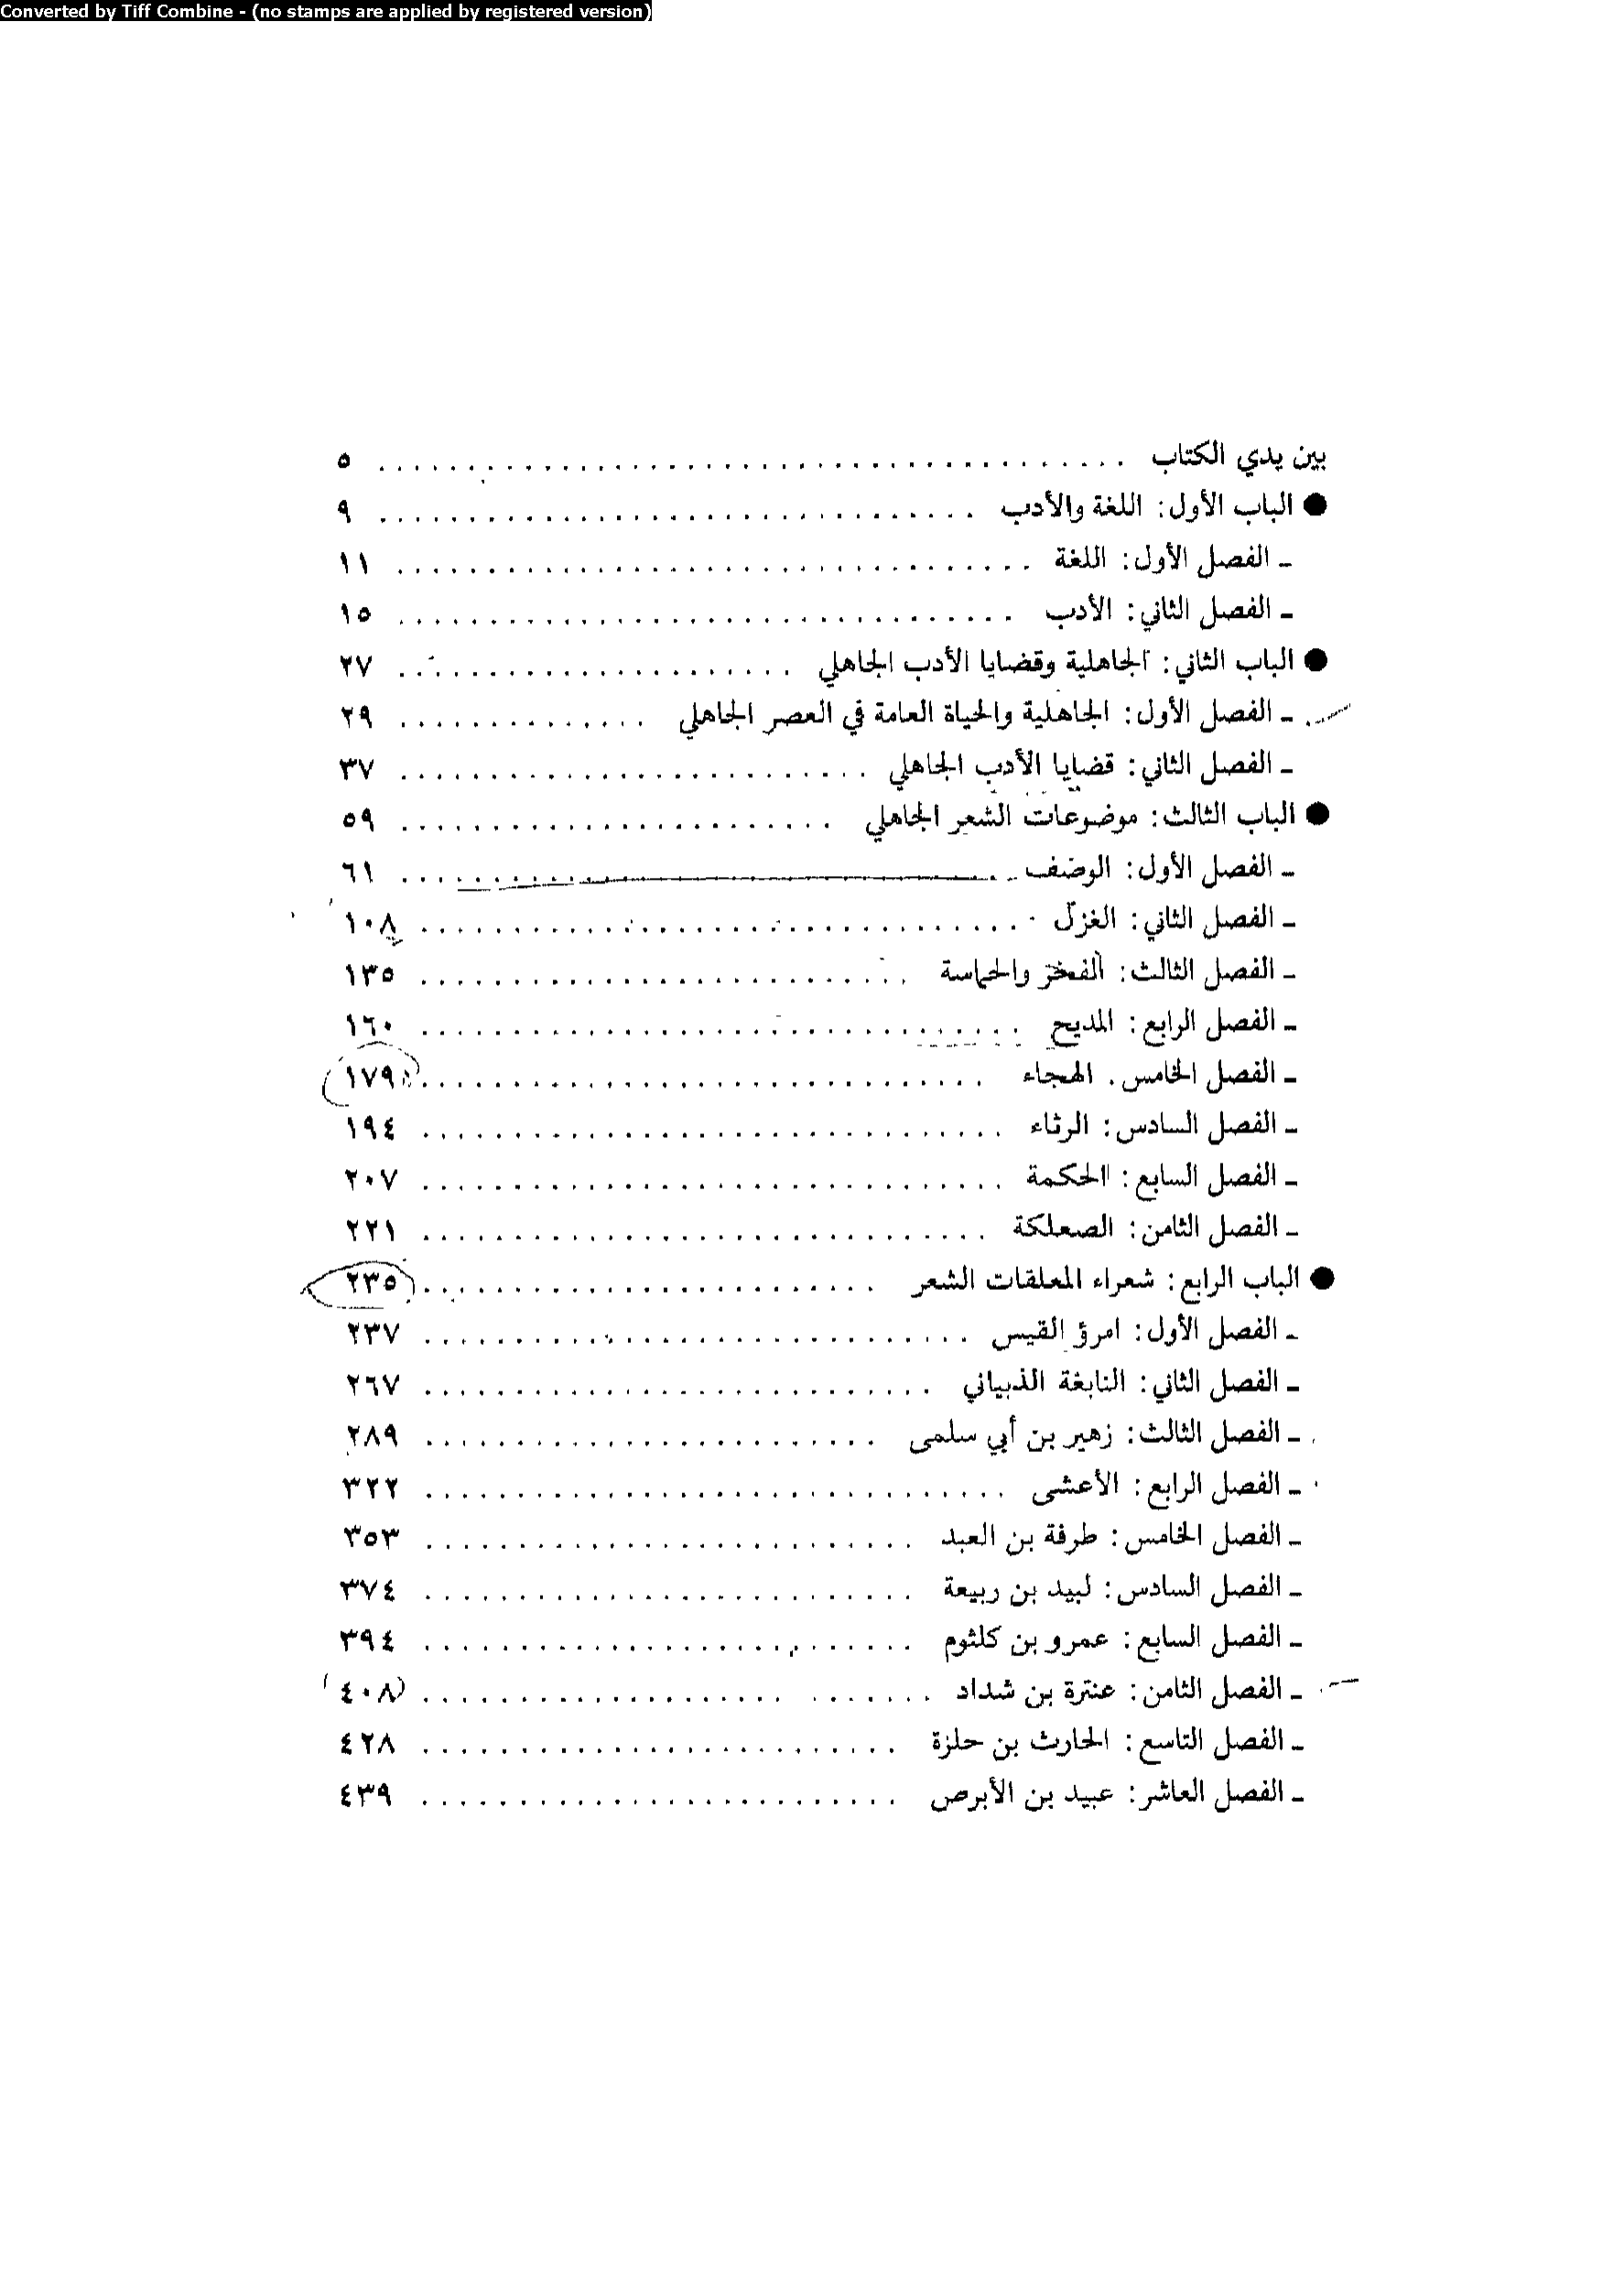 Converted by Tiff Combine - (no stamps are applied by registered version)
بين يدي الكتاب . . . . . . . . . . ٥
● الباب الأول: اللغة والأدب . . . . . . . . . . ٩
ـ الفصل الأول: اللغة . . . . . . . . . . ١١
ـ الفصل الثاني: الأدب . . . . . . . . . . ١٥
● الباب الثاني: الجاهلية وقضايا الأدب الجاهلي . . . . . . . . . . ٢٧
ـ الفصل الأول: الجاهلية والحياة العامة في العصر الجاهلي . . . . . . . . . . ٢٩
ـ الفصل الثاني: قضايا الأدب الجاهلي . . . . . . . . . . ٣٧
● الباب الثالث: موضوعات الشعر الجاهلي . . . . . . . . . . ٥٩
ـ الفصل الأول: الوصف . . . . . . . . . . ٦١
ـ الفصل الثاني: الغزل . . . . . . . . . . ١٠٨
ـ الفصل الثالث: الفخر والحماسة . . . . . . . . . . ١٣٥
ـ الفصل الرابع: المديح . . . . . . . . . . ١٦٠
ـ الفصل الخامس. الهجاء . . . . . . . . . . ١٧٩
ـ الفصل السادس: الرثاء . . . . . . . . . . ١٩٤
ـ الفصل السابع: الحكمة . . . . . . . . . . ٢٠٧
ـ الفصل الثامن: الصعلكة . . . . . . . . . . ٢٢١
● الباب الرابع: شعراء المعلقات الشعر . . . . . . . . . . ٢٣٥
ـ الفصل الأول: امرؤ القيس . . . . . . . . . . ٢٣٧
ـ الفصل الثاني: النابغة الذبياني . . . . . . . . . . ٢٦٧
ـ الفصل الثالث: زهير بن أبي سلمى . . . . . . . . . . ٢٨٩
ـ الفصل الرابع: الأعشى . . . . . . . . . . ٣٢٢
ـ الفصل الخامس: طرفة بن العبد . . . . . . . . . . ٣٥٣
ـ الفصل السادس: لبيد بن ربيعة . . . . . . . . . . ٣٧٤
ـ الفصل السابع: عمرو بن كلثوم . . . . . . . . . . ٣٩٤
ـ الفصل الثامن: عنترة بن شداد . . . . . . . . . . ٤٠٨
ـ الفصل التاسع: الحارث بن حلزة . . . . . . . . . . ٤٢٨
ـ الفصل العاشر: عبيد بن الأبرص . . . . . . . . . . ٤٣٩